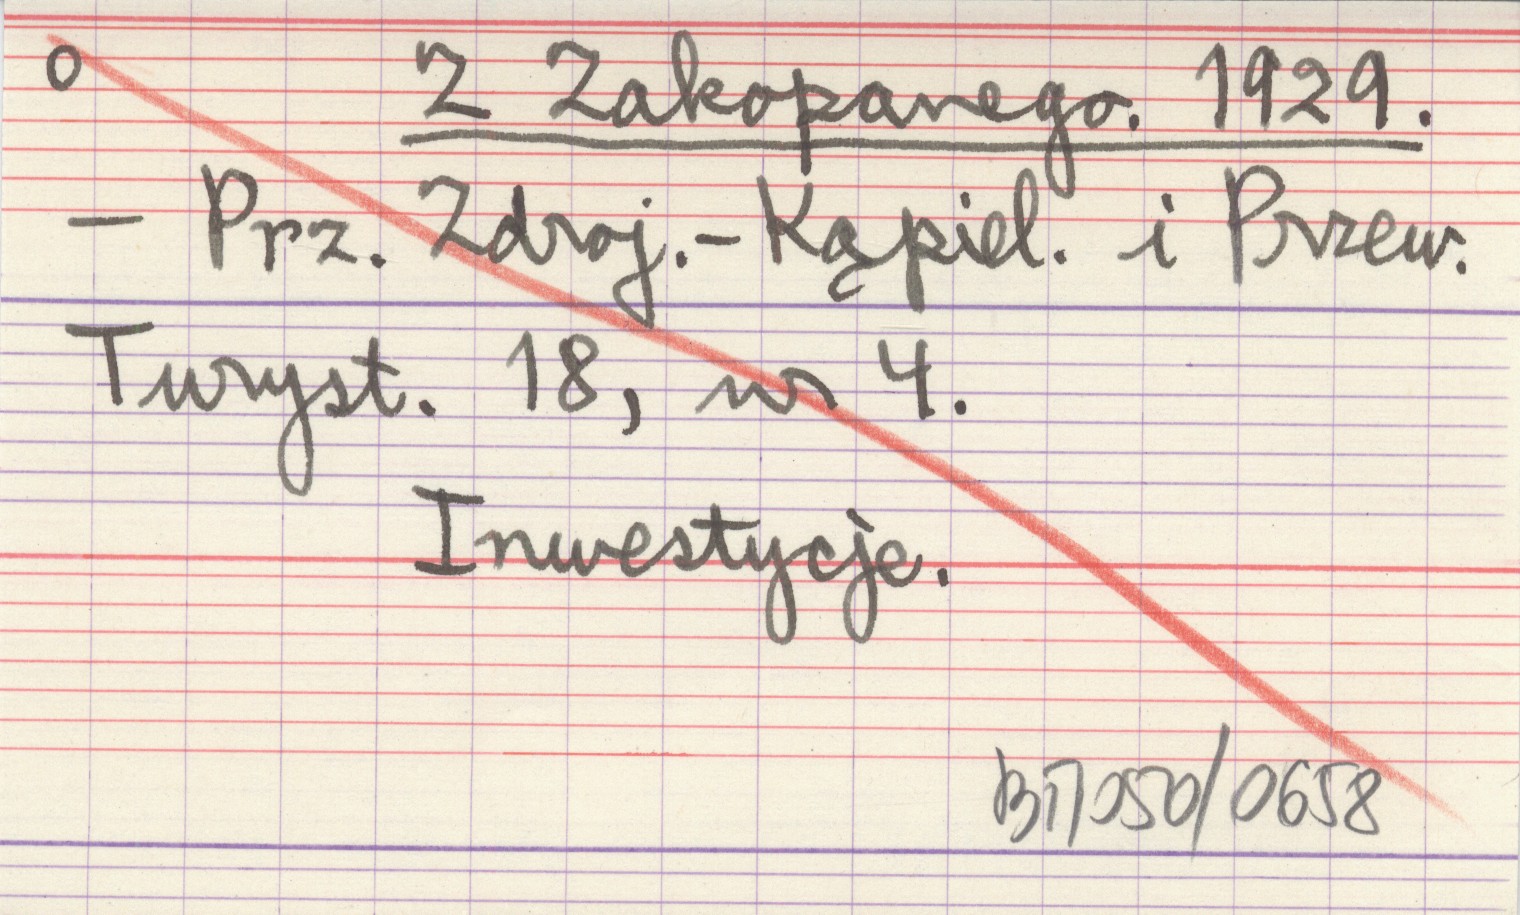 o Z Zakopanego. 1929.
– Prz. Zdroj.-Kąpiel. i Przew.
Turyst. 18, nr 4.
Inwestycje.
BT/050/0658